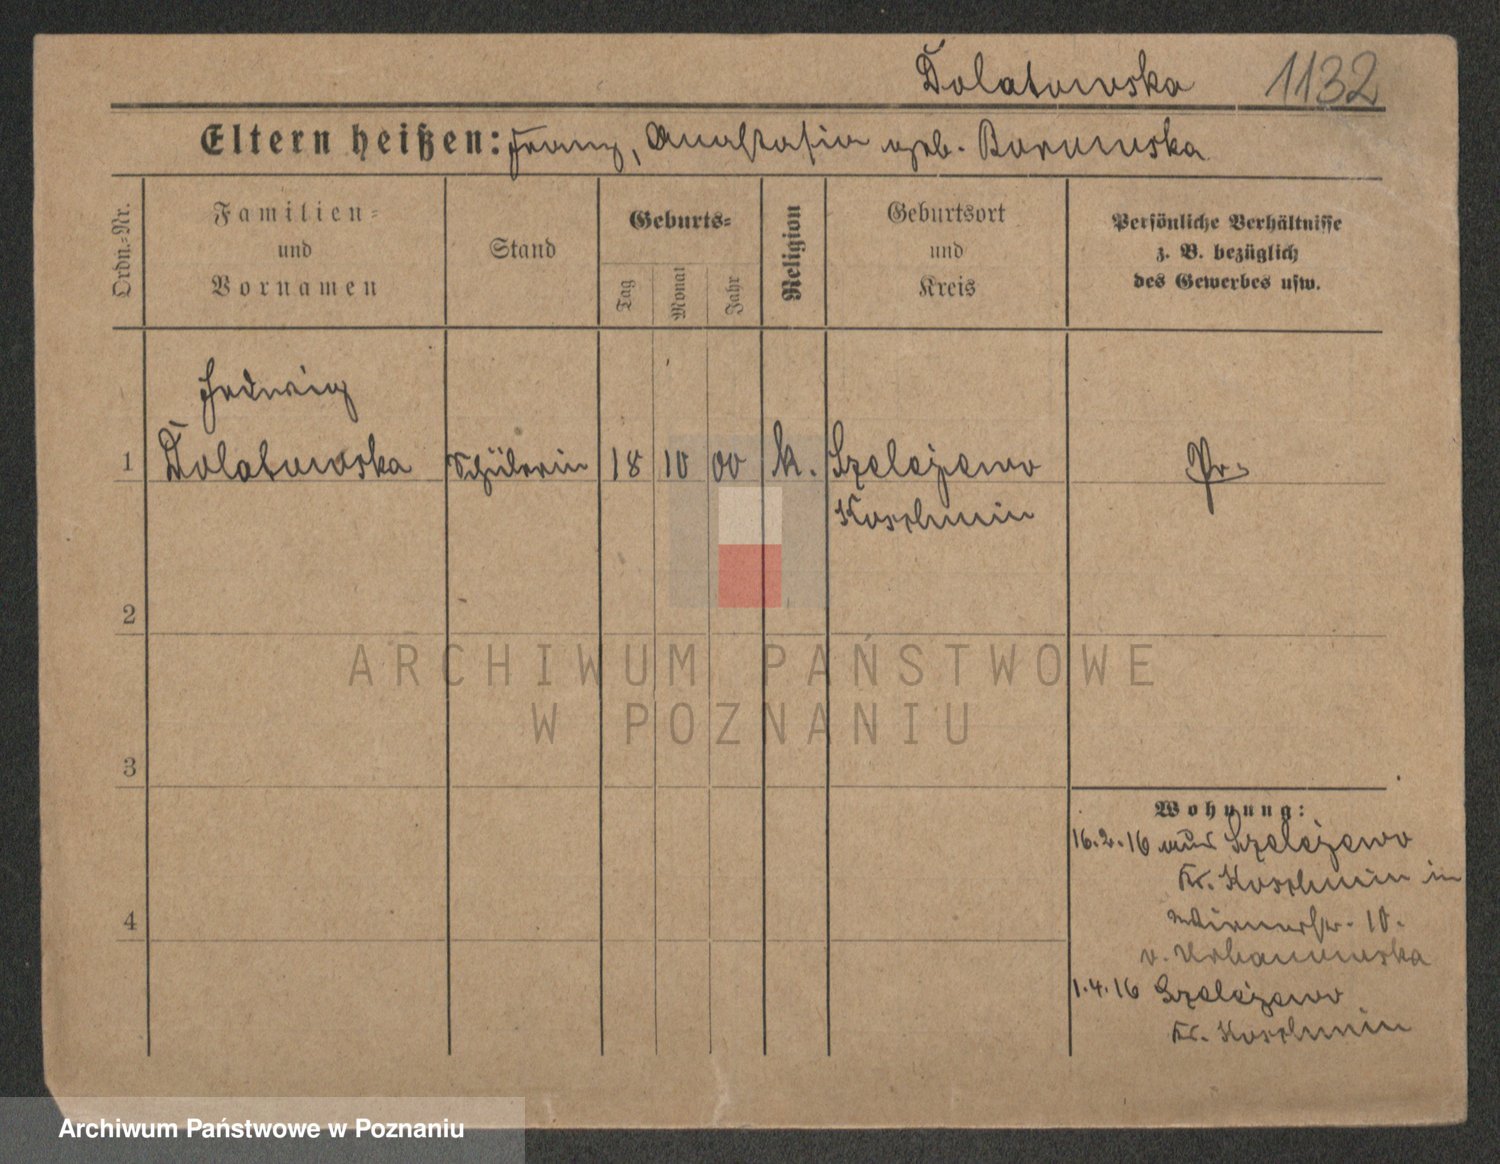 Dolatowska 1132
Eltern heißen: Franz, Anastasia geb. Borowska
Ordn.-Nr.
Familien-
und
Vornamen
Stand
Geburts-
Tag
Monat
Jahr
Religion
Geburtsort
und
Kreis
Persönliche Verhältnisse
z. B. bezüglich
des Gewerbes usw.
Hedwig
1 Dolatowska Schülerin 18 10 00 k. Szelejewo Pr.
Koschmin
2
3
4
Wohnung:
16.2.16 aus Szelejewo
Kr. Koschmin in
10.
v. Urbanowska
1.4.16 Szelejewo
Kr. Koschmin
ARCHIWUM PAŃSTWOWE
W POZNANIU
Archiwum Państwowe w Poznaniu